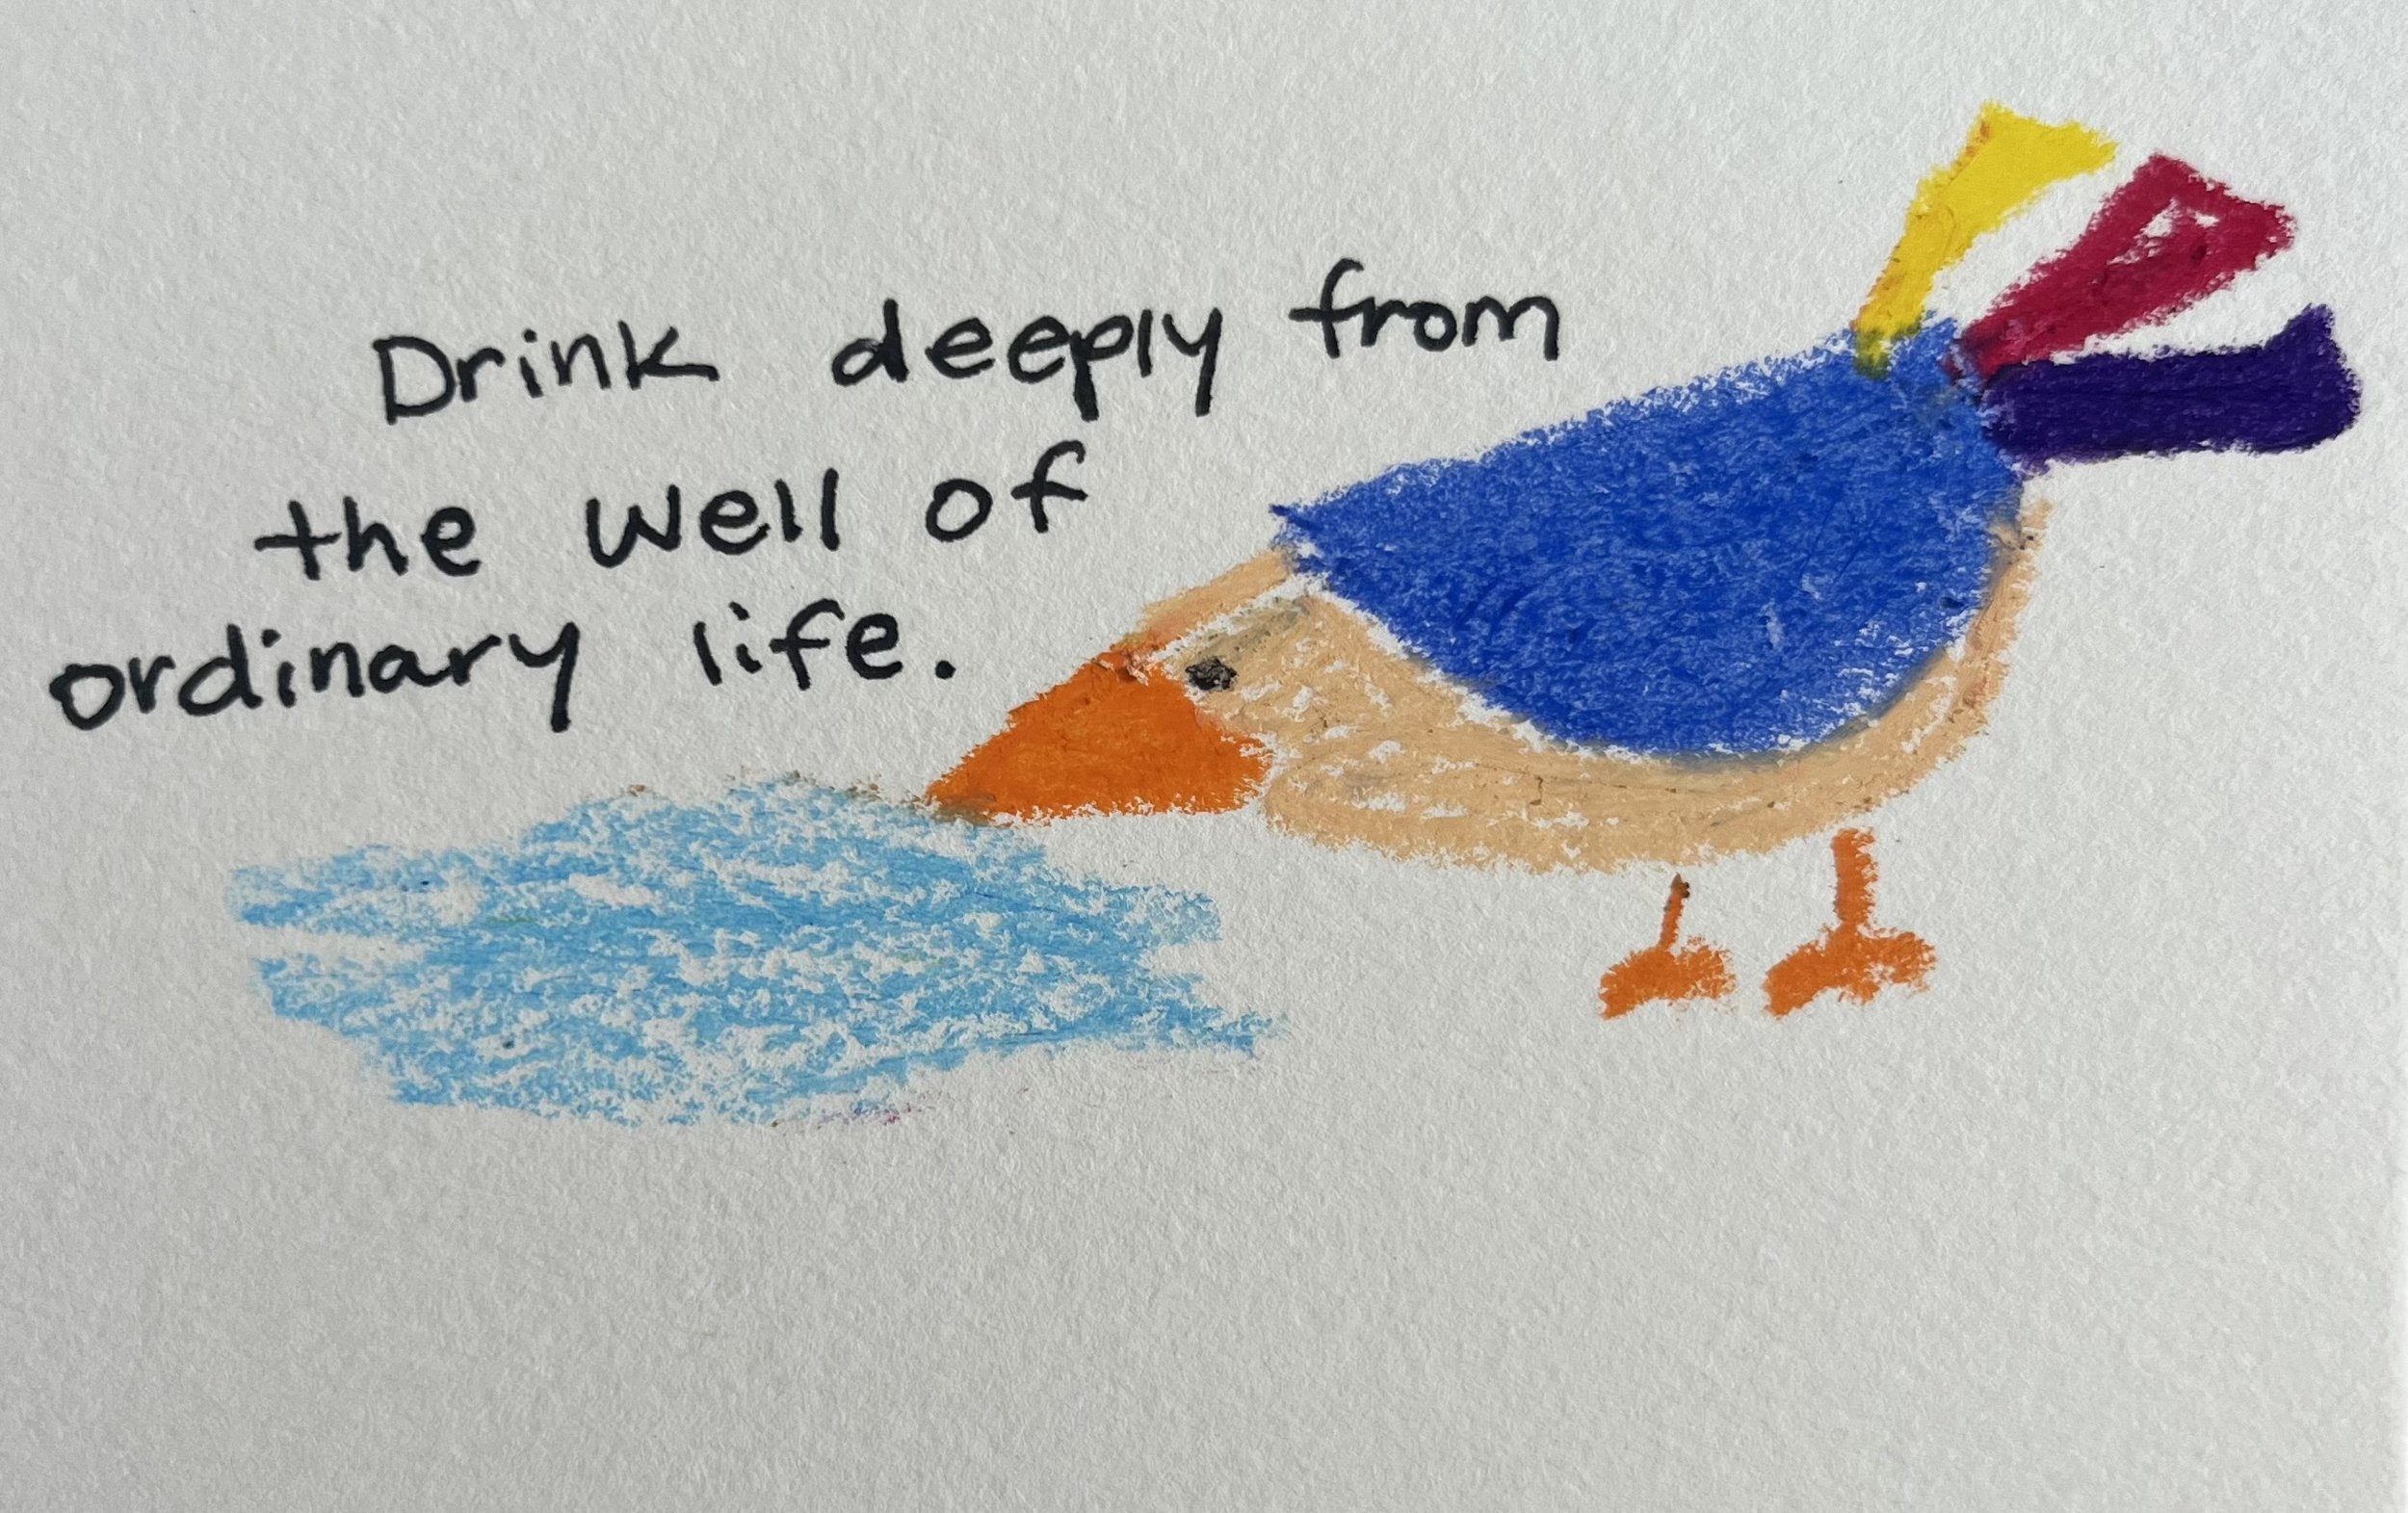 Drink deeply from
the well of
ordinary life.